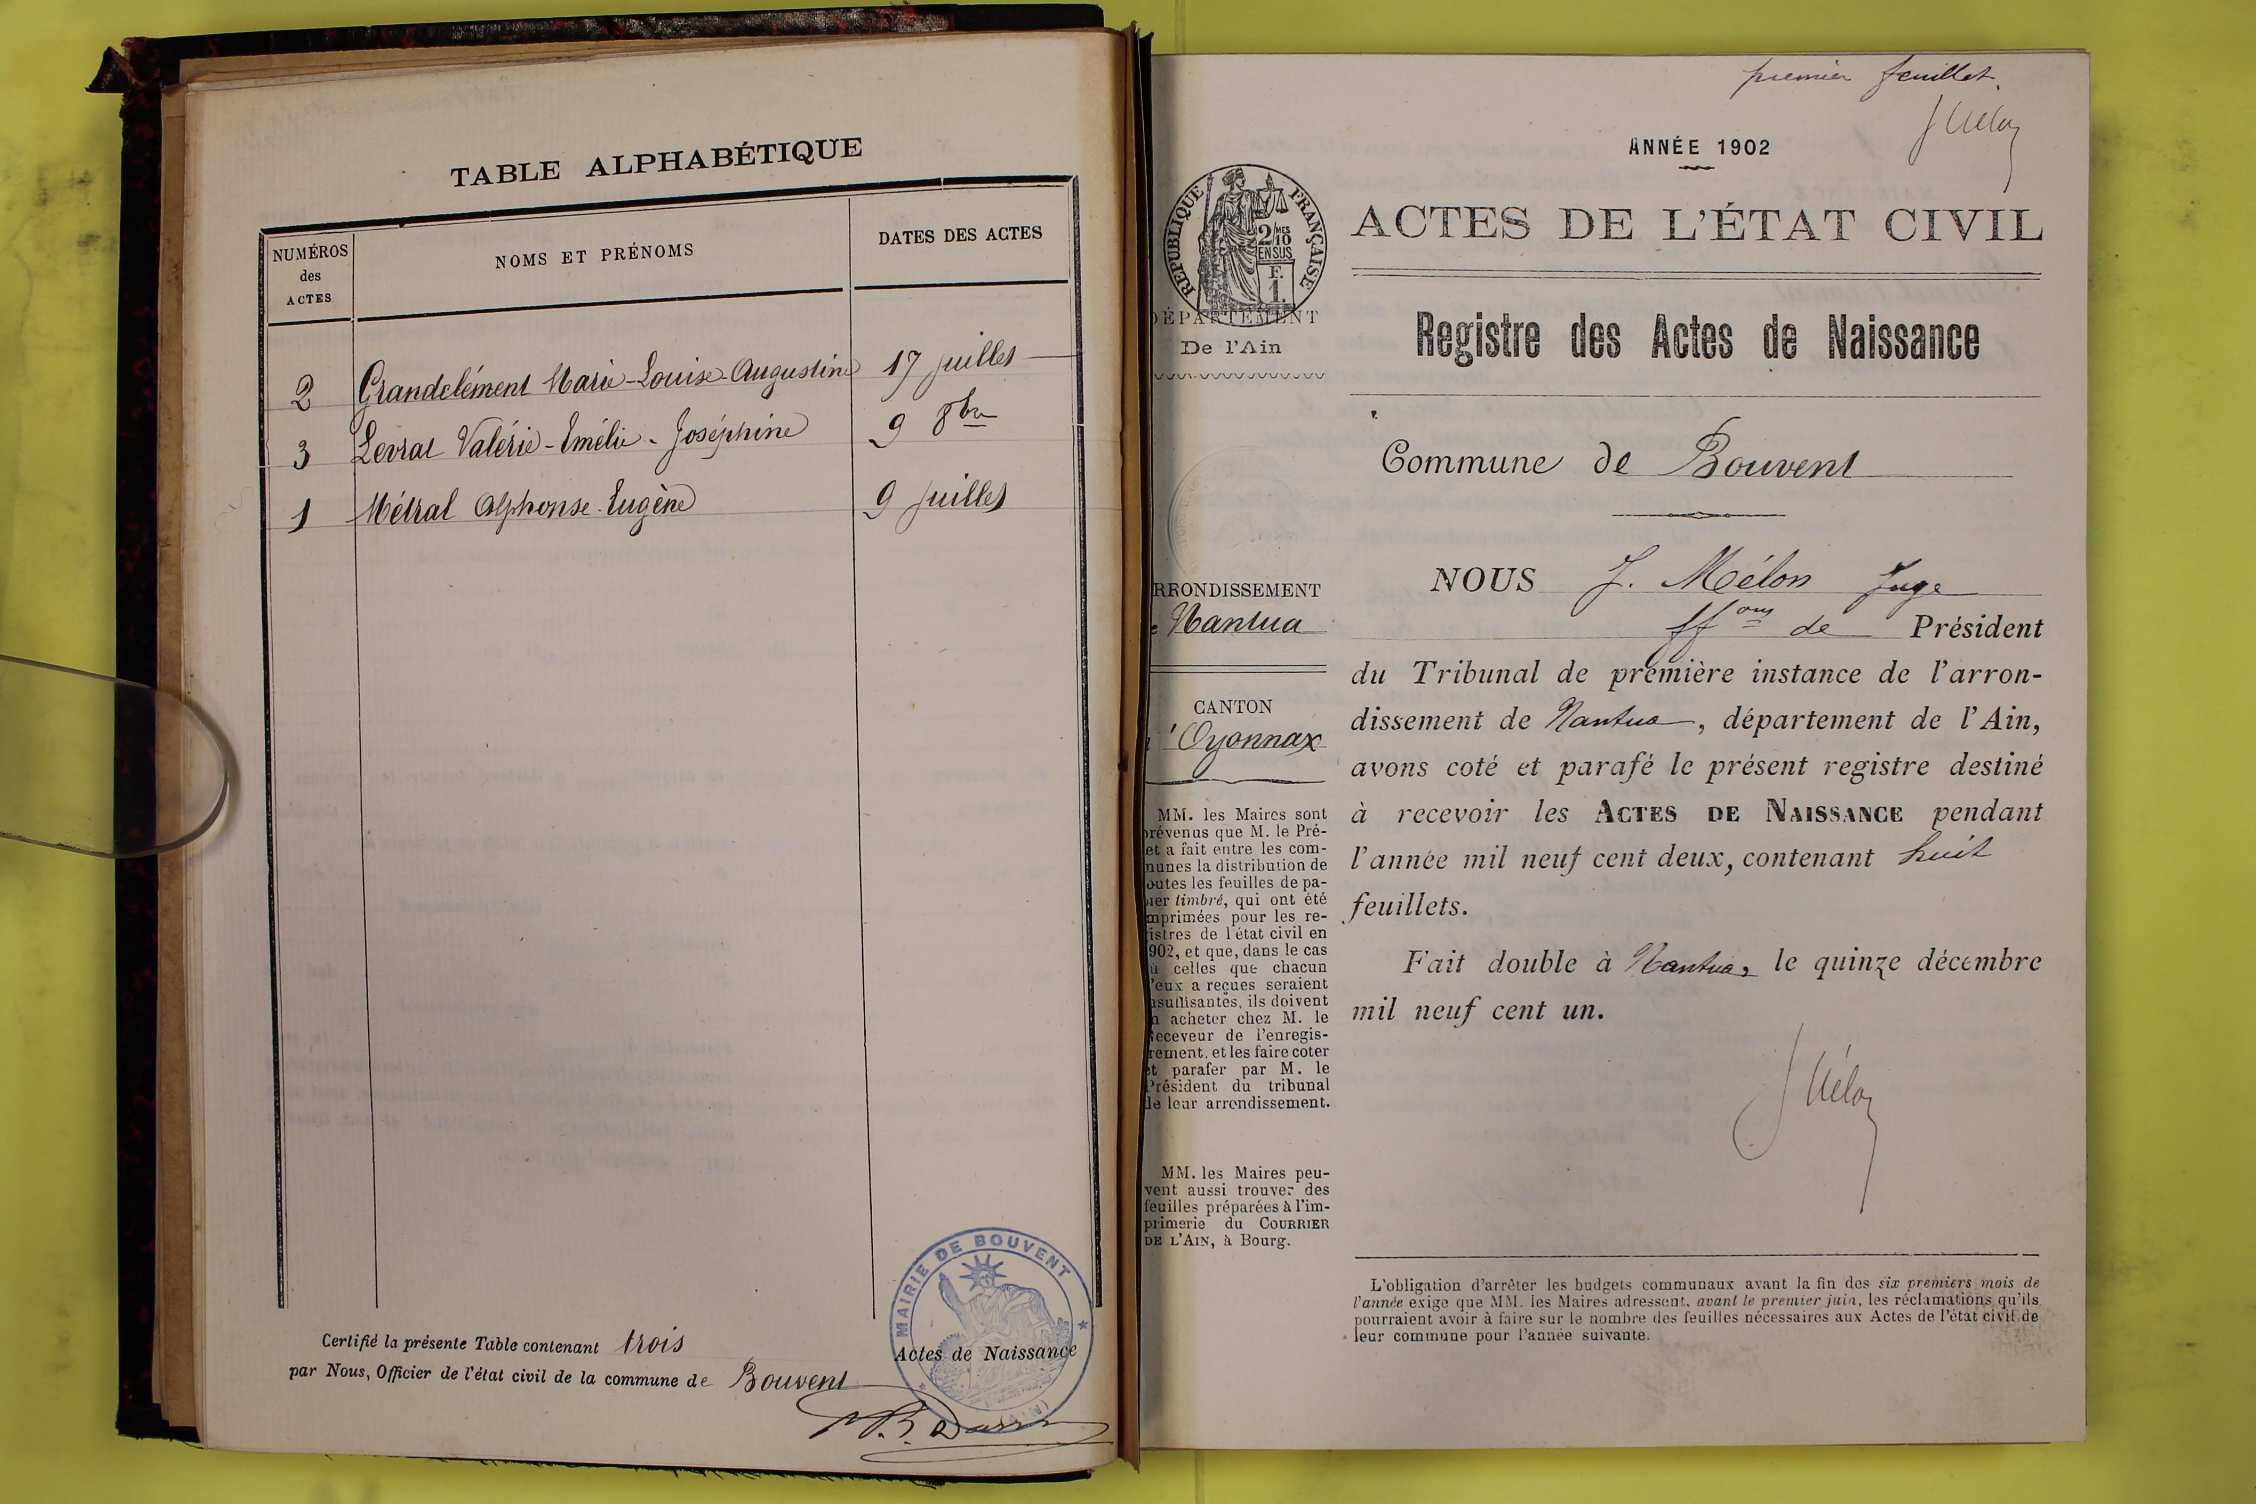 TABLE ALPHABÉTIQUE
NUMÉROS
des
ACTES
NOMS ET PRÉNOMS
DATES DES ACTES
2 Grandclément Marie-Louise-Augustine 17 juillet
3 Levrat Valérie-Emélie-Joséphine 9 8bre
1 Métral Alphonse-Eugène 9 juillet
Certifié la présente Table contenant trois
Actes de Naissance
par Nous, Officier de l'état civil de la commune de Bouvent
MAIRIE DE BOUVENT
(AIN)
premier feuillet.
J Mélon
ANNÉE 1902
RÉPUBLIQUE FRANÇAISE
2/10MES
EN SUS
F.
1.
DÉPARTEMENT
De l'Ain
ARRONDISSEMENT
de Nantua
CANTON
d'Oyonnax
MM. les Maires sont
prévenus que M. le Pré-
fet a fait entre les com-
munes la distribution de
toutes les feuilles de pa-
pier timbré, qui ont été
imprimées pour les re-
gistres de l'état civil en
1902, et que, dans le cas
où celles que chacun
d'eux a reçues seraient
insuffisantes, ils doivent
en acheter chez M. le
Receveur de l'enregis-
trement, et les faire coter
et parafer par M. le
Président du tribunal
de leur arrondissement.
MM. les Maires peu-
vent aussi trouver des
feuilles préparées à l'im-
primerie du COURRIER
DE L'AIN, à Bourg.
ACTES DE L'ÉTAT CIVIL
Registre des Actes de Naissance
Commune de Bouvent
NOUS J. Mélon Juge
ffons de Président
du Tribunal de première instance de l'arron-
dissement de Nantua, département de l'Ain,
avons coté et parafé le présent registre destiné
à recevoir les ACTES DE NAISSANCE pendant
l'année mil neuf cent deux, contenant huit
feuillets.
Fait double à Nantua, le quinze décembre
mil neuf cent un.
J Mélon
L'obligation d'arrêter les budgets communaux avant la fin des six premiers mois de
l'année exige que MM. les Maires adressent, avant le premier juin, les réclamations qu'ils
pourraient avoir à faire sur le nombre des feuilles nécessaires aux Actes de l'état civil de
leur commune pour l'année suivante.